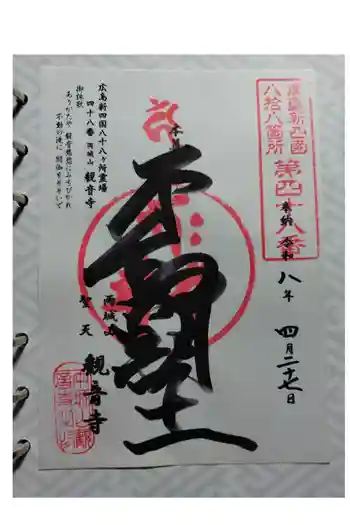 広島新四国
八拾八箇所
第四十八番
奉納 令和
八年
四月二十七日
本尊
聖天
両城山
観音寺
広島新四国八十八ヶ所霊場
四十八番 両城山 観音寺
御詠歌
ありがたや 観音慈悲に みちびかれ
不動の滝に